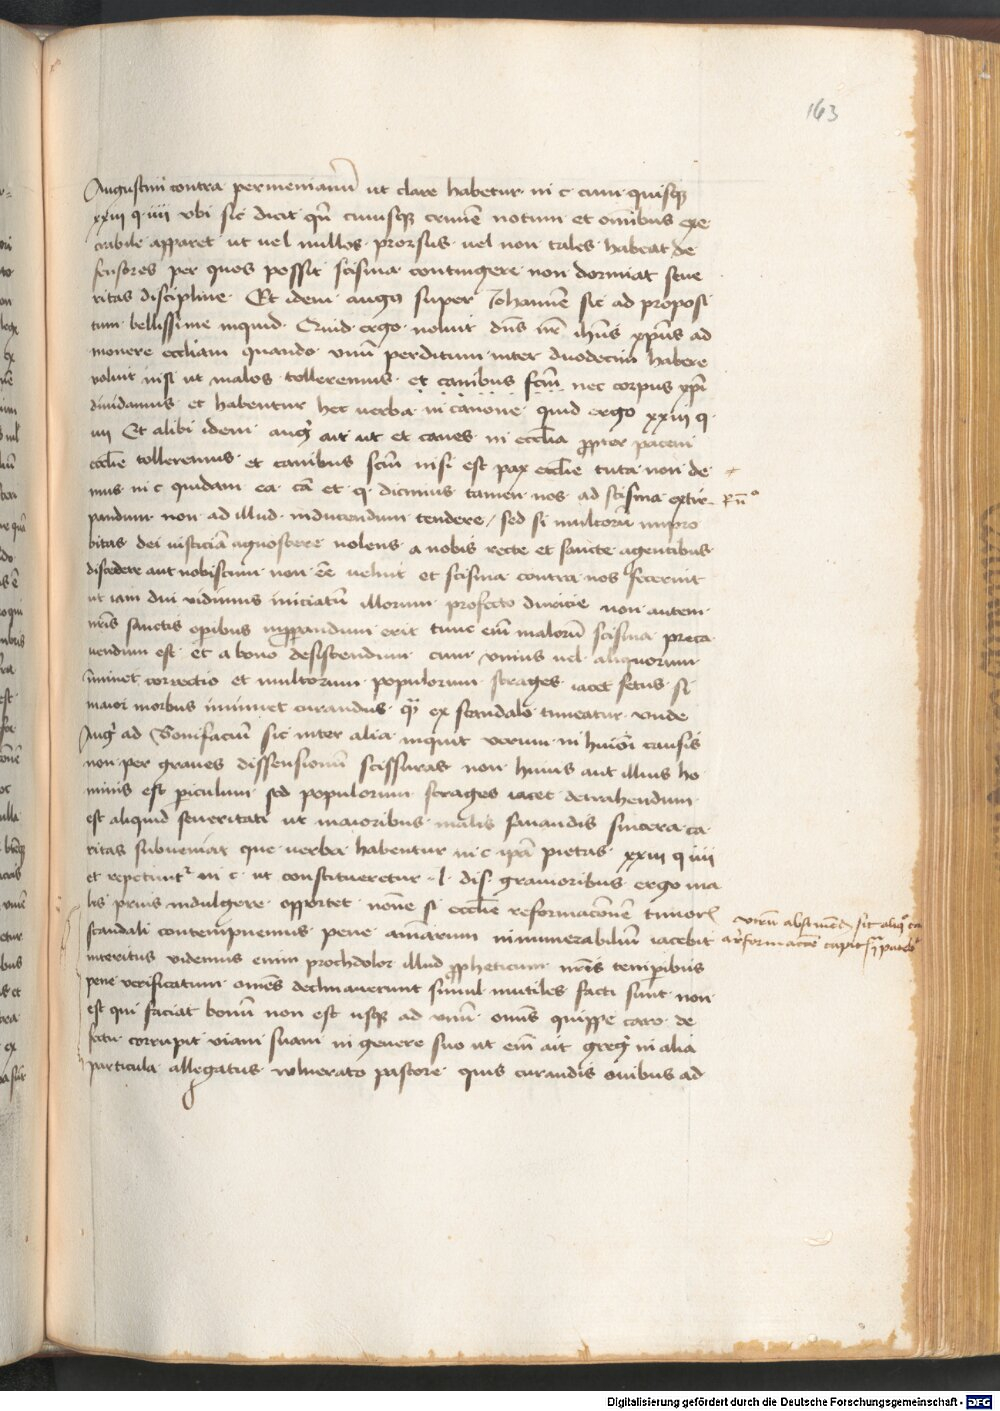 163
Augustini contra permenianū ut clare habetur in c cum quisqȝ
xxiii q iiii vbi sic dicit qn̄ cuiusqȝ crimē notum et om̄ibus exe
cribile apparet ut uel nullos prorsus uel non tales habeat de
fensores per quos possit scisma contingere non dormiat seue
ritas discipline Et idem augꝯ super Johannē sic ad proposi
tum bellissime inquid Quid ergo noluit dn̄s nr̄ ihūs xp̄us ad
monere eccliam quando vnū perditum inter duodecim habere
voluit nisi ut malos tolleremus et canibus scm̄ nec corpus xp̄i
diuidamus et habentur hec uerba in canone quid ergo xxiii q
iiii Et alibi idem augꝰ ait ut et canes in ecclīa propter pacem
ecclīe tolleremus et canibus scm̄ nisi est pax ecclīe tuta non de
mus in c quidam ea cā et q dicimus tamen nos ad scisma extir
pandum non ad illud inducendum tendere / sed si multorū impro
bitas dei iusticiā agnoscere nolens a nobis recte et sancte agentibus
discedere aut nobiscum non ēe uelint et scisma contra nos fecerint
ut iam diu vidimus iniciatū illorum profecto duricie non autem
nr̄is sanctis oꝑibus inꝓꝑandum erit tunc em̄ malorū scisma preca
uendum est et a bono desistendum cum vnius uel aliquorum
īminet correctio et multorum populorum strages iacet setus si
maior morbus iminet curandus qȝ ex scandalo timeatur vnde
Augꝰ ad Bonifaciū sic inter alia inquit verum in huiōi causis
non per graues dissensionū scissuras non huius aut illius ho
minis est ꝑiculum sed populorum strages iacet detrahendum
est aliquid seueritati ut maioribus malis sanandis sincera ca
ritas subueniat que uerba habentur in c ipā pietas xxiii q iiii
et repetuntᷣ in c ut constitueretur l dis grauioribus ergo ma
lis prius indulgere opportet nōne si ecclīe reformacōnē timore
scandali contempnemus pene aīarum innumerabiliū iacebit
interitus videmus enim prochdolor illud ꝓpheticum nr̄is tempibus
pene verificatum om̄es declinauerunt simul inutiles facti sunt non
est qui faciat bonū non est usqȝ ad vnū om̄is quippe caro de
fectu corrupit viam suam in genere suo ut em̄ ait gregꝰ in alia
particula allegatus vulnerato pastore quis curandis ouibus ad